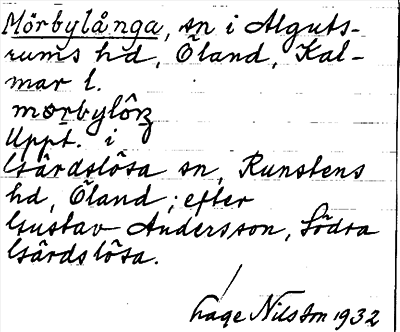 Mörbylånga, sn i Alguts-
rums hd, Öland, Kal-
mar l.
Uppt. i
Gärdslösa sn, Runstens
hd, Öland; efter
Gustav Andersson, Södra
Gärdslösa.
Nilsson 1932